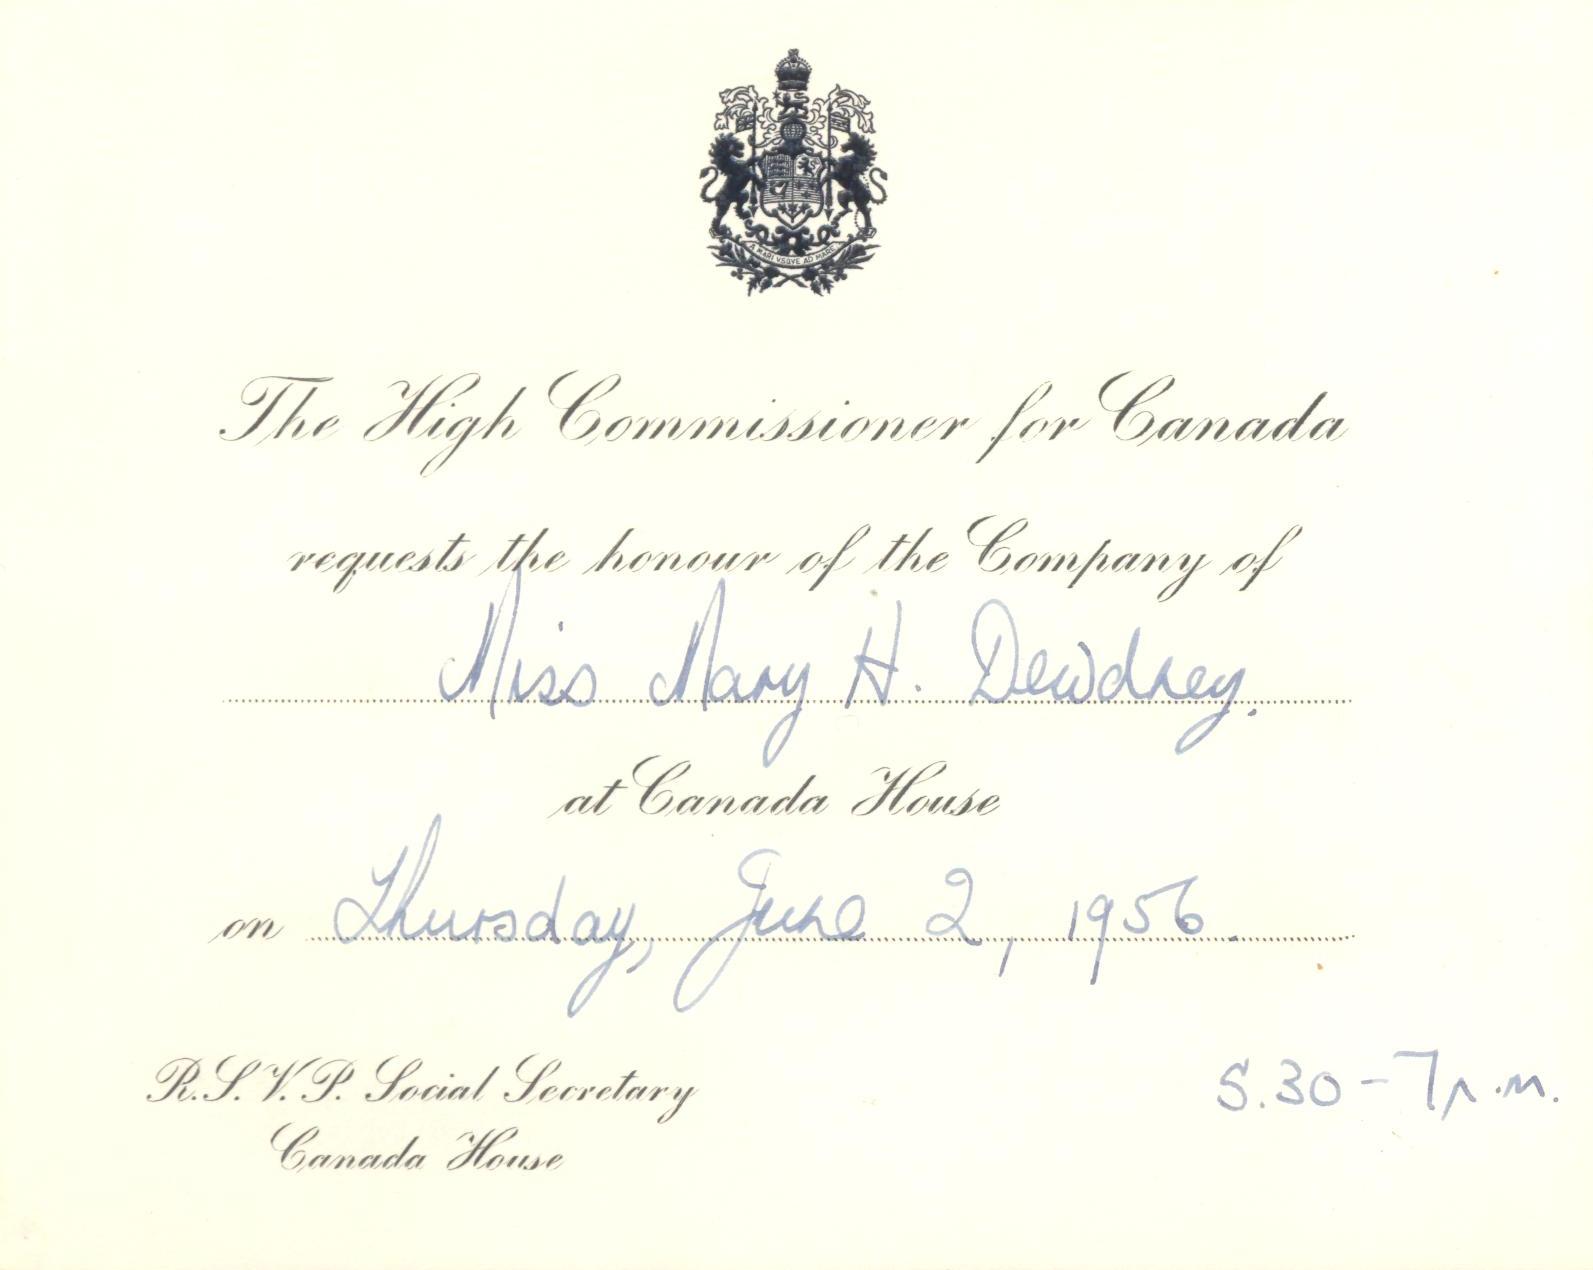 A MARI VSQVE AD MARE
The High Commissioner for Canada
requests the honour of the Company of
Miss Mary H. Dewdney.
at Canada House
on Thursday, June 2, 1956.
R.S.V.P. Social Secretary
Canada House
5.30 - 7 p.m.